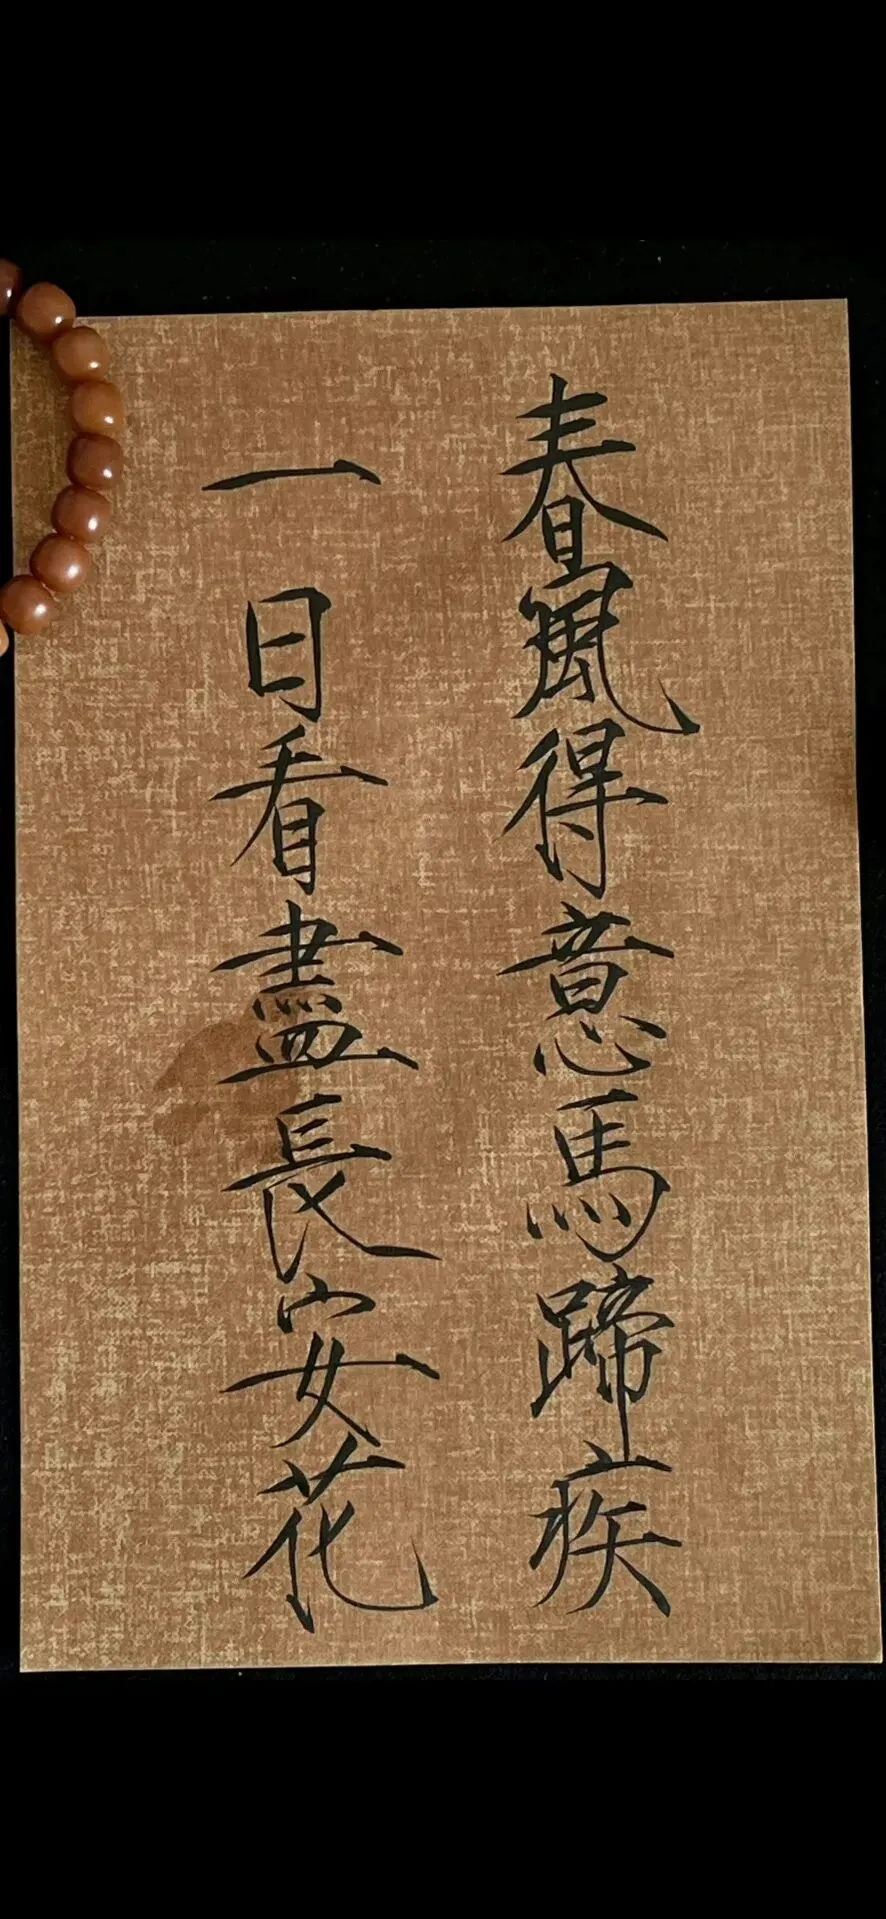 春風得意馬蹄疾
一目看盡長安花